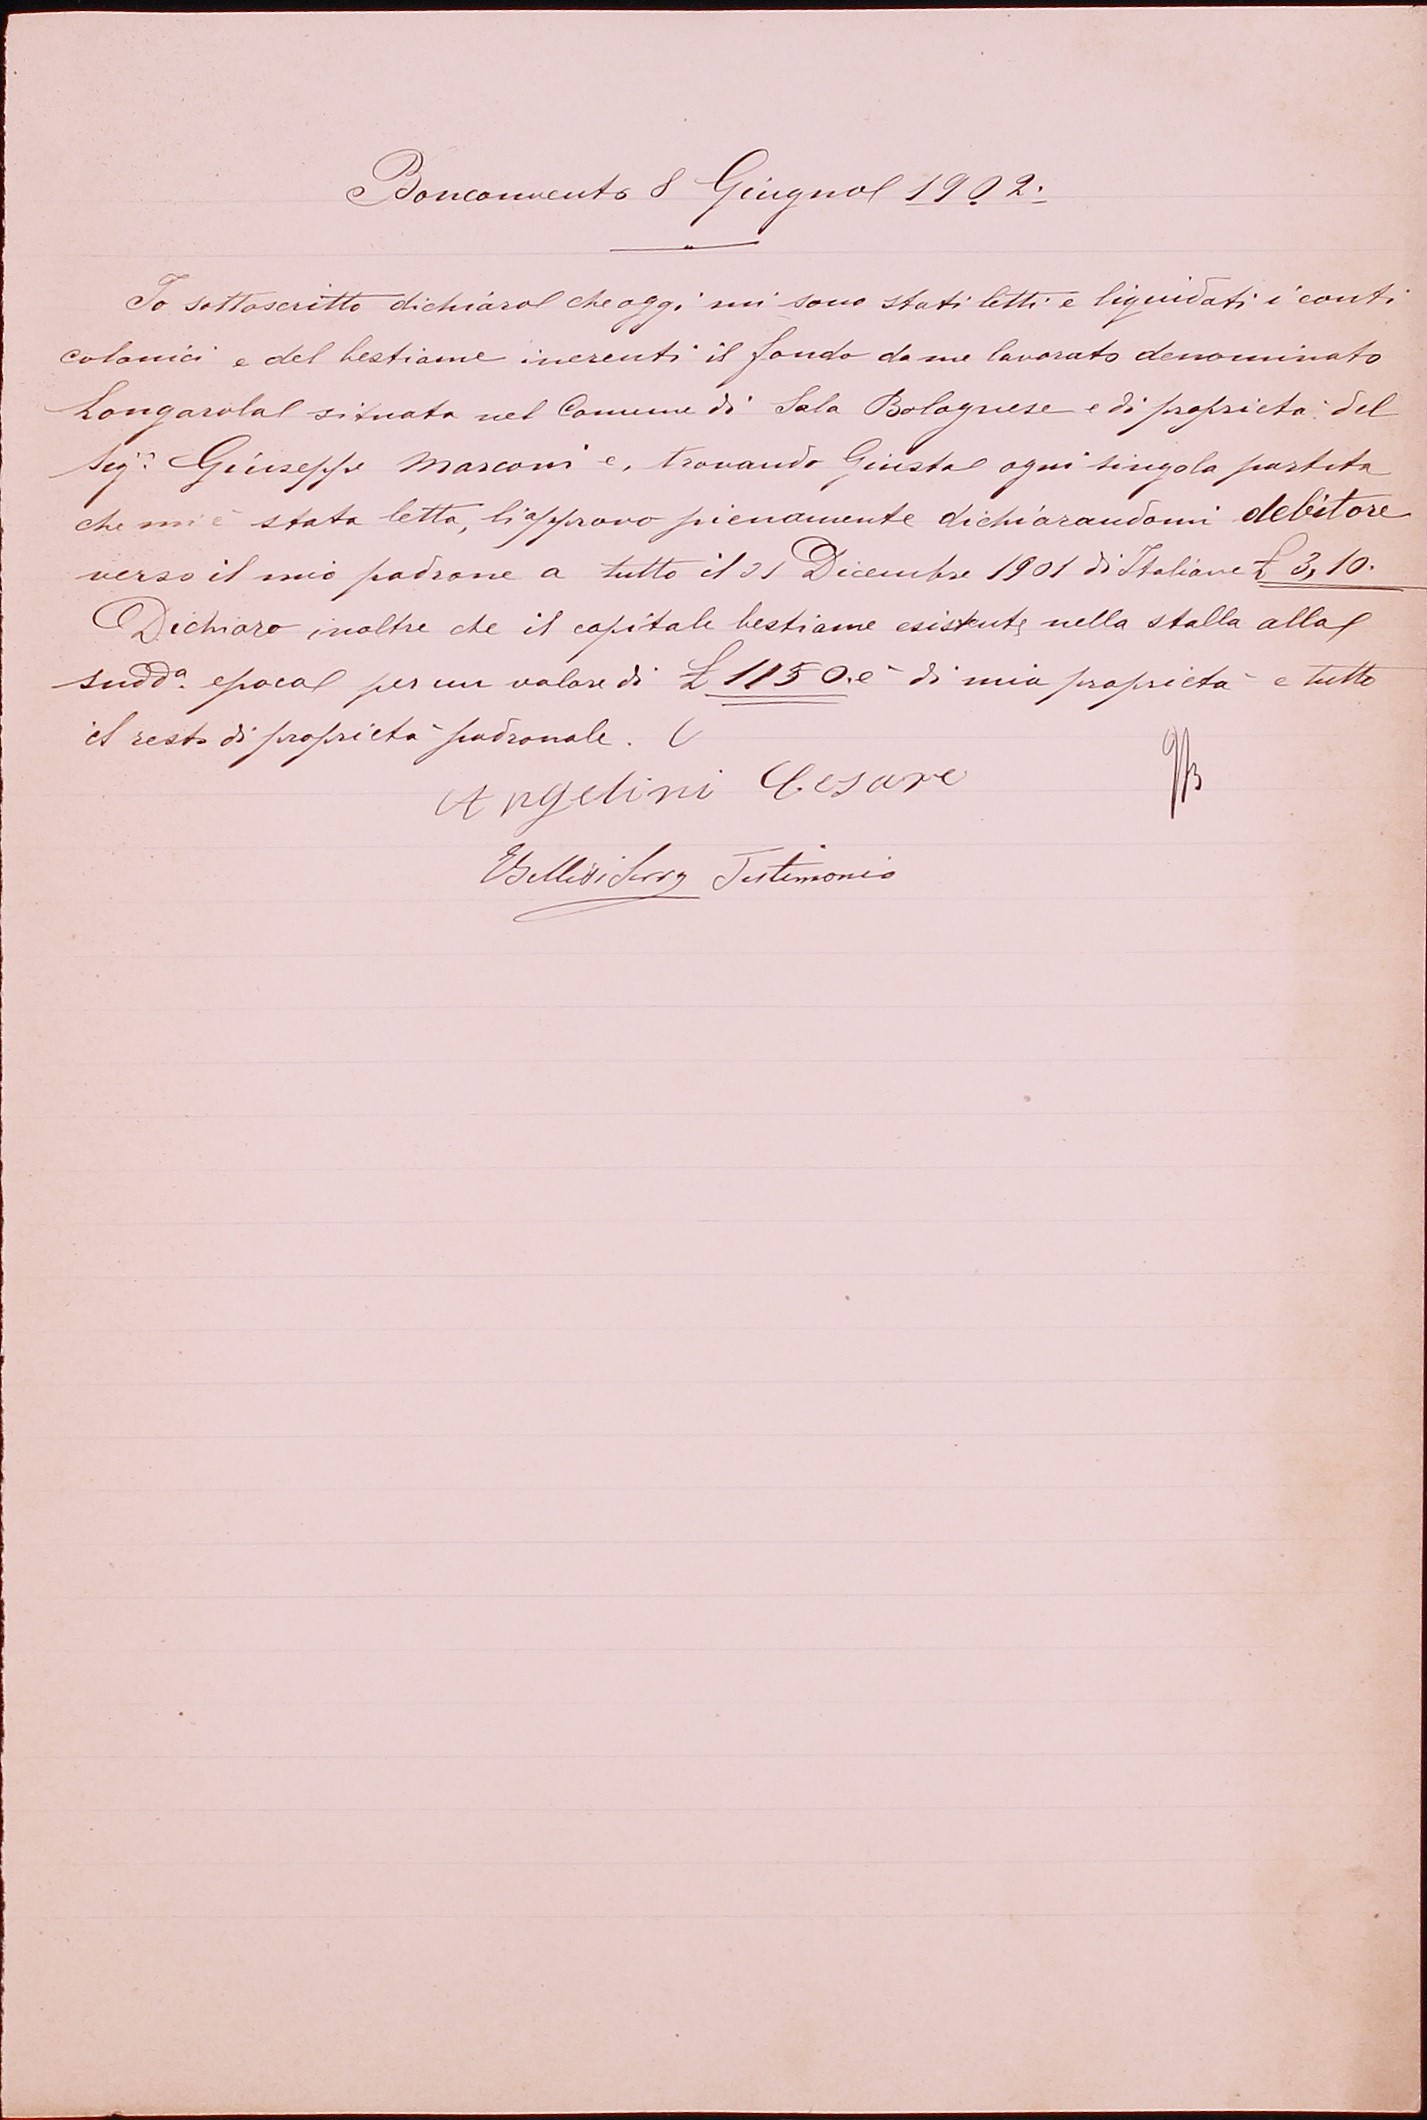 Bonconvento 8 Giugno 1902.
Io sottoscritto dichiaro che oggi mi sono stati letti e liquidati i conti
colonici e del bestiame inerenti il fondo da me lavorato denominato
Longarola situata nel Comune di Sala Bolognese e di proprietà del
Sigr. Giuseppe Marconi e, trovando Giusta ogni singola partita
che mi è stata letta, li approvo pienamente dichiarandomi debitore
verso il mio padrone a tutto il 31 Dicembre 1901 di Italiane £ 3,10.
Dichiaro inoltre che il capitale bestiame esistente nella stalla alla
sudda. epoca per un valore di £ 1150. è di mia proprietà e tutto
il resto di proprietà padronale.
Angelini Cesare
Testimonio